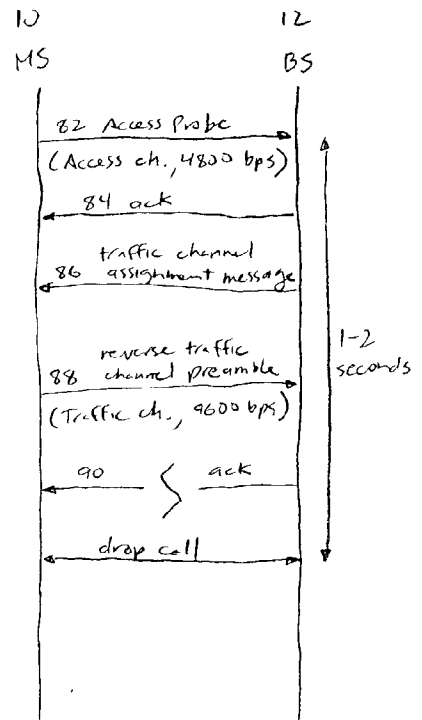 10 12
MS BS
82 Access Probe
(Access ch., 4800 bps)
84 ack
traffic channel
86 assignment message
1-2
seconds
reverse traffic
88 channel preamble
(Traffic ch., 9600 bps)
90 ack
drop call